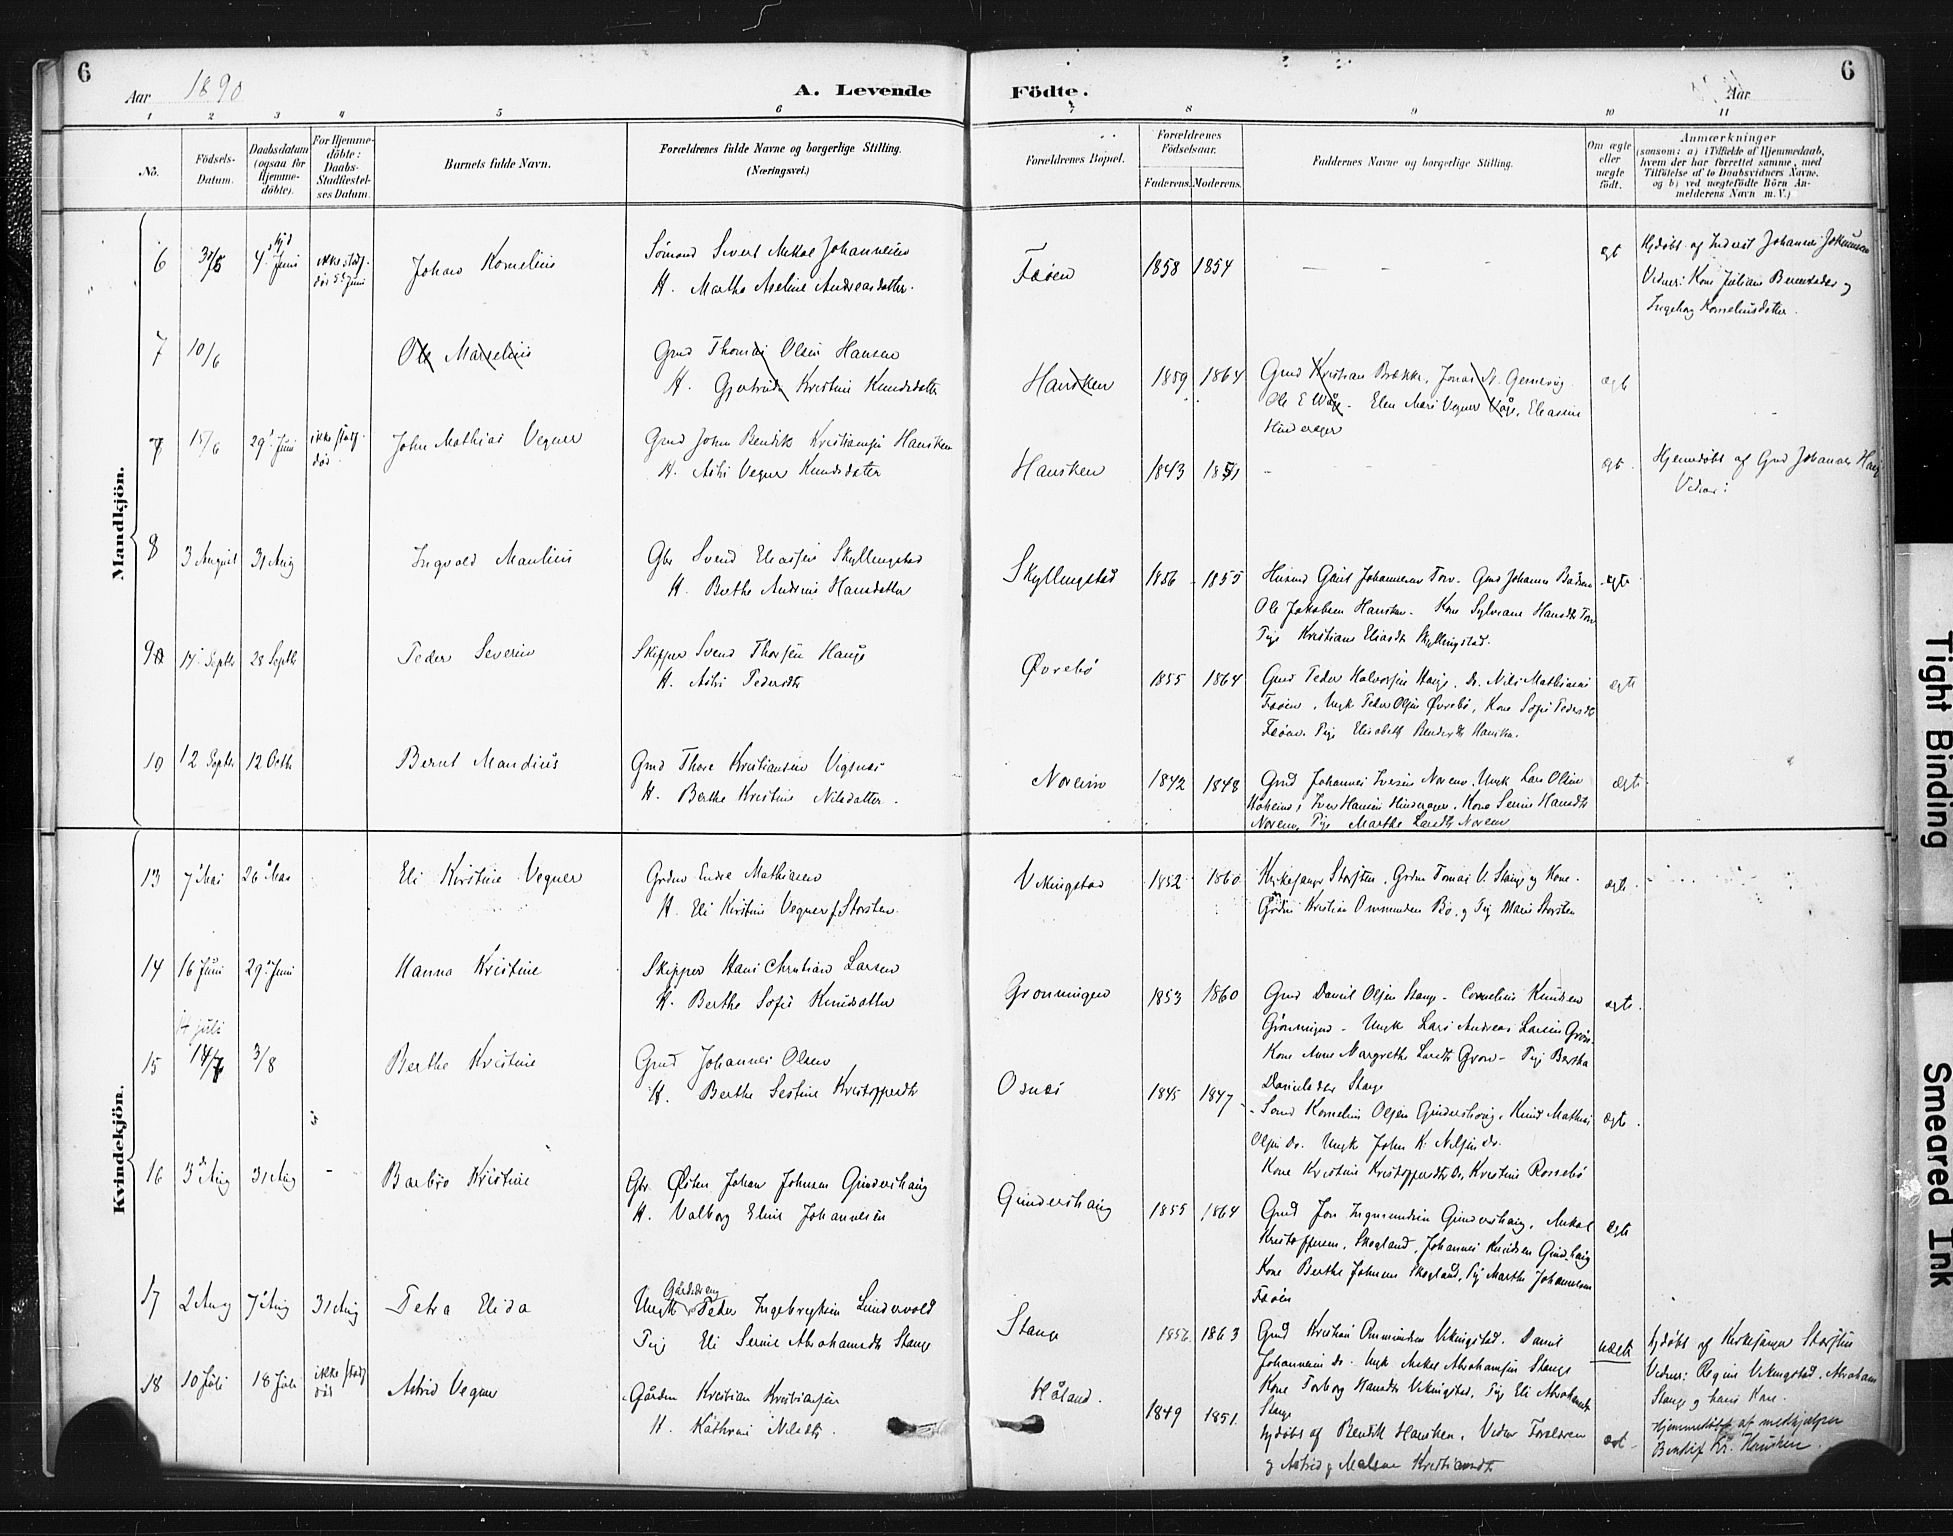 6
Aar 1890
A. Levende
Födte.
Aar
6
1 2 3 4 5 6 7 8 9 10 11
No.
Födsels-Datum.
Daabsdatum (ogsaa for Hjemme-döbte).
For Hjemme-döbte: Daabs-Stadfæstel-ses Datum.
Barnets fulde Navn.
Forældrenes fulde Navne og borgerlige Stilling. (Næringsvei.)
Forældrenes Bopæl.
Forældrenes Födselsaar.
Faderens. Moderens.
Faddernes Navne og borgerlige Stilling.
Om ægte eller uægte födt.
Anmærkninger
(saasom: a) i Tilfælde af Hjemmedaab,
hvem der har forrettet samme, med
Tilföielse af to Daabsvidners Navne,
og b) ved uægtefödte Börn An-
melderens Navn m. V.)
Mandkjön.
6 4 Juni ikke stadf. död 5 Juni Johan Kornelius
Sømand Sivert Mikal Johannesen
H. Marthe Aseline Andreasdatter.
Føøen 1858 1854 – – – egt
Hjdøbt af Johannes
Vidner: Kone Juliane Berentsdtr og
Ingeborg Korneliusdatter.
7 10/6 Ole Marselius
Grd Thomas Olsen Hansen
H. Gjertrude Kristine Knudsdatter
Hausken 1859 1864
Grd Kristian Brække, Jonas
Ole E Våge. Elen Mari Vegner Våge, Eleasine
Hinderager
ægt
7 15/6 29 Juni ikke stadf. död John Mathias Vegner
Grd John Bendik Kristiansen Hausken
H. Asbri Vegner Knudsdatter
Hausken 1843 – – ægt
Hjemmedøbt af Grd Johannes Haug
Vidner:
8 3 August 31 Aug Ingvald Maulius
Gbr Svend Eliassen Skyllingstad
H. Berthe Andrine Hansdatter
Skyllingstad 1856 1855
Husmd Johannesen Torv. Grd Johannes
Ole Jakobsen Hausken. Kone Sylviane Hansdtr Torv
Pige Kristiane Eliasdtr Skyllingstad.
ægte
9 14 Septbr 28 Septbr Peder Severin
Skipper Svend Thorsen Hauge
H. Asbri Pedersdtr
Øvrebø 1855 1864
Grd Peder Halvorsen Hauge. Do. Nils Mathiasen
Føøen, Ungk Peder Olsen Øvrebø, Kone Sofie Pedersdtr
Føøen. Pige Elisabeth Bendiksdtr Hausken.
ægte
10 12 Septbr 12 Octbr Bernt Mandius
Grd Thore Kristiansen Vigsnæs
H. Berthe Kristine Nilsdatter.
Noreim 1842 1848
Grd Johannes Iversen Noreim, Ungk Lars Olsen
Iver Hansen Hinderager. Kone Serine Hansdtr
Noreim, Pige Marthe Larsdtr Noreim
ægte
Kvindekjön.
13 7 Mai 26 Mai Eli Kirstine Vegner
Grdm Endre Mathiasen
H. Eli Kirstine Vegner f. Storsten
Vikingstad 1852 1860
Kirkesanger Storsten, Grdm Tomas V. Stange og Kone.
Grdm Kristian Ommundsen Bø, og Pig Marie Storsten
ægte
14 16 Juni 29 Juni Hanna Kristine
Skipper Hans Christian Larsen
H. Berthe Sofie Knudsdatter
Grønningen 1853 1860
Grd Daniel Olsen Stange – Cornelius Knudsen
Grønningen – Ungk Lars Andreas Larsen Grøn.
Kone Anne Margrethe Larsdtr Grøn – Pige Bertha
Danielsdtr Stange
ægte
14 juli
15 14/7 3/8 Berthe Kristine
Grd Johannes Olsen
H. Berthe Sestine Kristoffersdtr
Osnæs 1845 1847
Sømd Kornelius Olsen Gunnershoug, Knud Mathias
Olsen do. Ungk John K. Nilsen do.
Kone Kristine Kristoffersdtr do, Kristine Rossebø
ægte
16 3 Aug 31 Aug – Barbro Kristine
Gbr. Østen Johan Johnsen Gunnershaug
H. Valborg Eline Johannesen
Gunnershaug 1855 1864
Grd Jon Ingmundsen Gunnershaug, Mikal
Kristoffersen, Skogland, Johannes Knudsen Gundhaug
Kone Berthe Johnsen Skogland, Pig Marthe Johannesen
Føøen
ægte
17 2 Aug 7 Aug 31 Aug Petra Elida
Gårdsdreng
Ungk Peder Ingebrigtsen Lindervold
Pige Eli Serine Abrahamsdtr Stange
Stange 1856 1863
Grd Kristian Ommundsen Vikingstad. Daniel
Johannesen do. Ungk Mikal Abrahamsen Stange
Kone Torborg Hansdtr Vikingstad, Pige Eli Abrahamsdtr
Stange
uægte
hjdøbt af Kirkesanger Storsten
Vidner: Regine Vikingstad, Abraham
Stange og hans Kone.
18 10 Juli 18 Juli ikke stadf död Astrid Vegner
Gårdm Kristian Kristiansen
H. Kathrine Nilsdtr.
Håland. 1849 1851.
hjdøbt af Bendik Hausken. Vidner Forældren
og Astrid og Malene Kristiansdtr
ægt.
Hjemmedøbt af medhjælper
Bendix Kr. Hausken.
Tight Binding
Smeared Ink